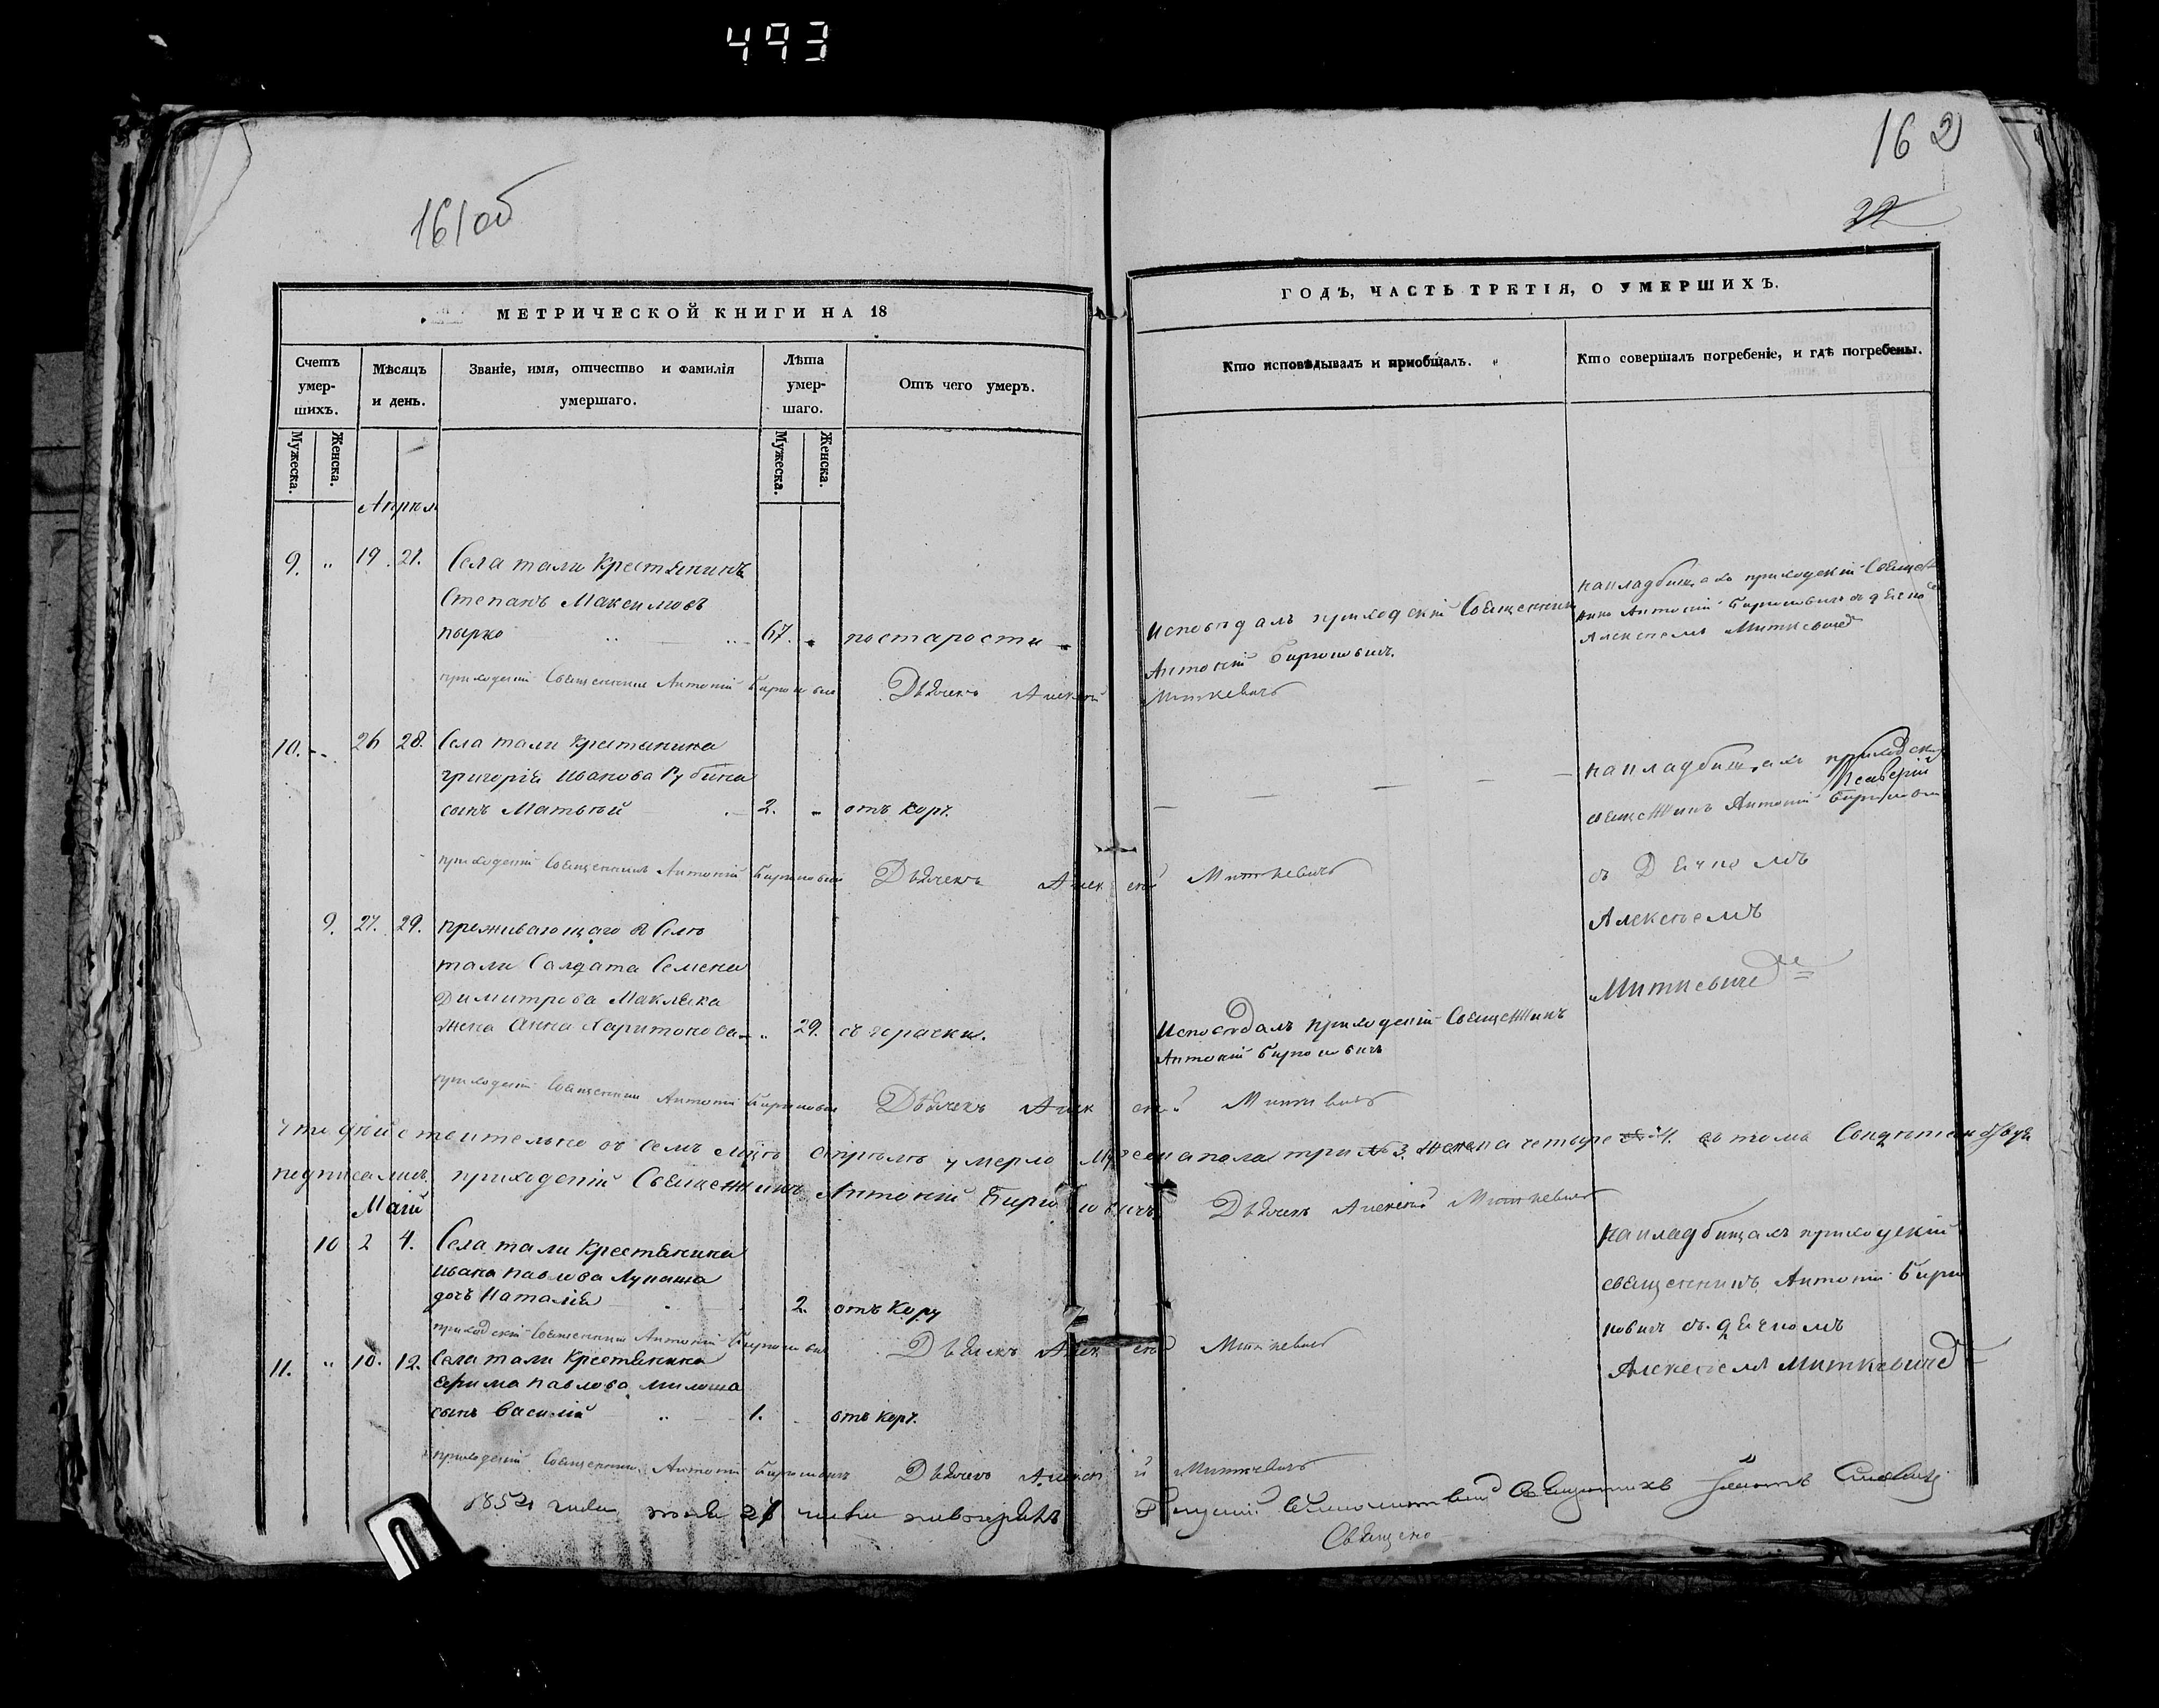 493
161об
162
22
МЕТРИЧЕСКОЙ КНИГИ НА 18
ГОДЪ, ЧАСТЬ ТРЕТІЯ, О УМЕРШИХЪ.
Счетъ умер-шихъ.
Мѣсяцъ и день.
Званіе, имя, отчество и фамилія
умершаго.
Лѣта умер-шаго.
Отъ чего умеръ.
Кто исповѣдывалъ и приобщалъ.
Кто совершалъ погребеніе, и гдѣ погребены.
Мужеска.
Женска.
Мужеска.
Женска.
Апрѣл
9. " 19. 21. Села тали Крестянинъ
Степанъ Максимовъ
пырко 67. постарости
Исповѣдалъ приходскій Священник
Антоній
накладбищахъ приходскій
Антоній
Алексѣемъ Миткевиче
приходскій Священникъ Антоній Дьячекъ Алексѣй Миткевичъ
10. 26 28. Села тали Крестянина
григорія Иванова Рубана
сынъ Матвѣй 2. отъ кор.
накладбищахъ приходскій
священникъ Антоній
съ Дьячкомъ
Алексѣемъ
Миткевиче
приходскій Священникъ Антоній Дьячекъ Алексѣй Миткевичъ
9. 27. 29. проживающаго в Селѣ
тали Солдата Семена
Димитрова Макляка
жена Анна Харитонова 29. съ горячки.
Исповѣдалъ приходскій Священникъ
Антоній
приходскій Священникъ Антоній Дьячекъ Алексѣй Миткевичъ
Что дѣйствительно въ семъ апрѣлѣ умерло Мужеска пола три № 3. женска четыре 4. въ томъ
подписались приходскій Священникъ Антоній Дьячекъ Алексѣй Миткевичъ
Маій
10 2 4. Села тали Крестянина
Ивана Павлова Лупаша
дочь Наталія 2. отъ Кору
накладбищахъ приходскій
священникъ Антоній
съ дьячкомъ
Алексѣемъ Миткевиче
приходскій Священникъ Антоній Дьячекъ Алексѣй Миткевичъ
11. " 10. 12. Села тали Крестянина
Ефима Павлова Милоша
сынъ Василій 1. отъ кор.
приходскій Священникъ Антоній Дьячекъ Алексѣй Миткевичъ